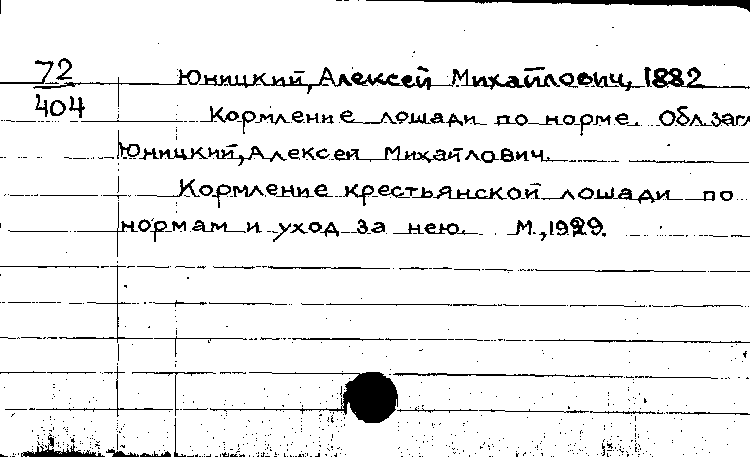 72
404
Юницкий, Алексей Михайлович, 1882
Кормление лошади по норме. Обл.загл
Юницкий, Алексей Михайлович.
Кормление крестьянской лошади по
нормам и уход за нею. М., 1929.